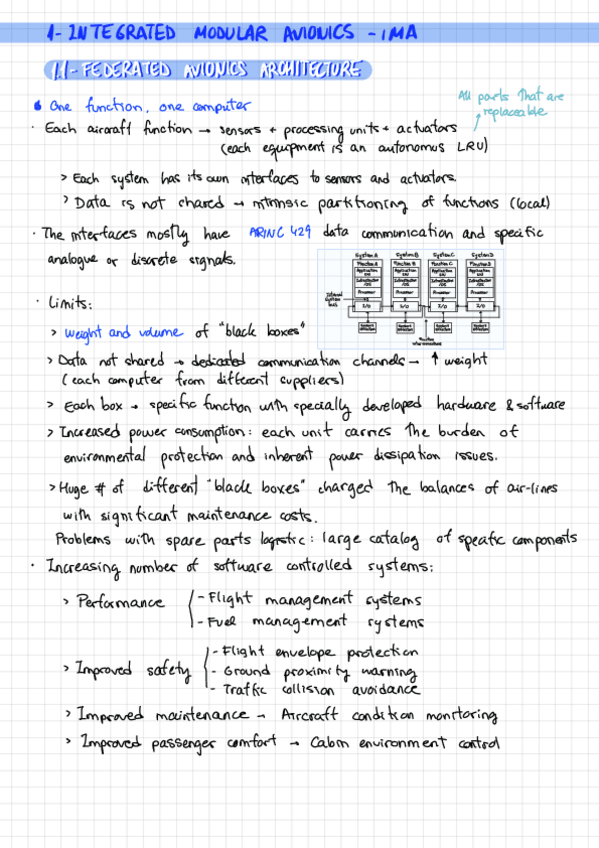 1- INTEGRATED MODULAR AVIONICS - IMA
1.1- FEDERATED AVIONICS ARCHITECTURE
One function, one computer
All parts that are
replaceable
· Each aircraft function → sensors + processing units + actuators
(each equipment is an autonomus LRU)
> Each system has its own interfaces to sensors and actuators.
> Data is not shared → intrinsic partitioning of functions (local)
· The interfaces mostly have ARINC 429 data communication and specific
analogue or discrete signals.
System A System B System C System D
Function A Function B Function C Function D
Application SW Application SW Application SW Application SW
Infrastructure /OS Infrastructure /OS Infrastructure /OS Infrastructure /OS
Processor Processor Processor Processor
I/O I/O I/O I/O
· Limits:
> weight and volume of "black boxes"
> Data not shared → dedicated communication channels → ↑ weight
(each computer from different suppliers)
> Each box → specific function with specially developed hardware & software
> Increased power consumption: each unit carries the burden of
environmental protection and inherent power dissipation issues.
> Huge # of different "black boxes" charged the balances of air-lines
with significant maintenance costs.
Problems with spare parts logistic: large catalog of specific components
· Increasing number of software controlled systems:
> Performance
- Flight management systems
- Fuel management systems
> Improved safety
- Flight envelope protection
- Ground proximity warning
- Traffic collision avoidance
> Improved maintenance → Aircraft condition monitoring
> Improved passenger comfort → Cabin environment control